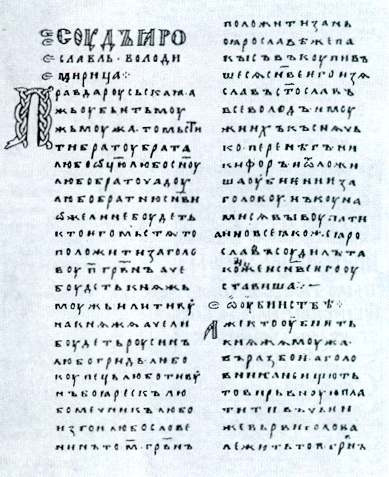 СОУДЪ ꙖРО
СЛАВЛЬ ВОЛОДИ
МИРИЦА
Правда роусьскаꙗ · а
жь оубьѥть моу
жь моужа · то мьсти
ти братоу брата
любо ѿцю любо сн҃оу
любо братоучадоу
любо братню сн҃ви
ѡже ли не боудеть
кто ѥго мьстѧ то
положити за голо
воу · п҃ · грвн҃ъ · аче
боудеть кнѧжь
моужь или тивоу
на кнѧжа · аче ли
боудеть роусинъ
любо гридь · любо
коупець · любо тивоу
нъ боꙗрескъ · лю
бо мечникъ · любо
изгои · любо слове
нинъ то · м҃ · грвн҃ъ
положити за нь ·
по ꙗрославѣ же па
кы съвъкоупивъ
шесѧ сн҃ве ѥго изѧ
славъ · ст҃ославъ ·
всеволодъ · и моу
жи ихъ · къснѧчь
ко · перенѣгъ · ни
кифоръ · и ѿложи
ша оубиѥниѥ за
головоу · нъ коуна
ми сѧ выкоупати
а ино все ꙗкоже ꙗро
славъ соудилъ · та
коже и сн҃ве ѥго оу
ставиша ·
ѡ оубииствѣ ·
Аже кто оубиѥть
кнѧжа моужа
въ разбои · а голо
вника не ищють
то вирьвноую пла
тити · въ чьѥи
же вьрви голова
лежить то · п҃ · грвн҃ъ